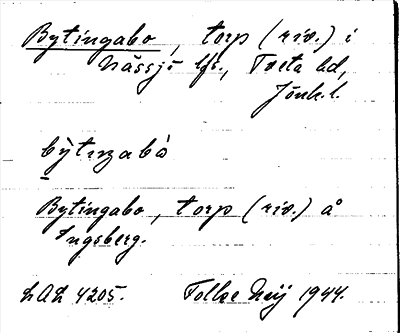 Bytingabo, torp (riv.) i
Nässjö lfs., Tveta hd,
Jönk. l.
bỳtıŋabò
Bytingabo, torp (riv.) å
Ingsberg.
LAL 4205. Folke Meij 1944.